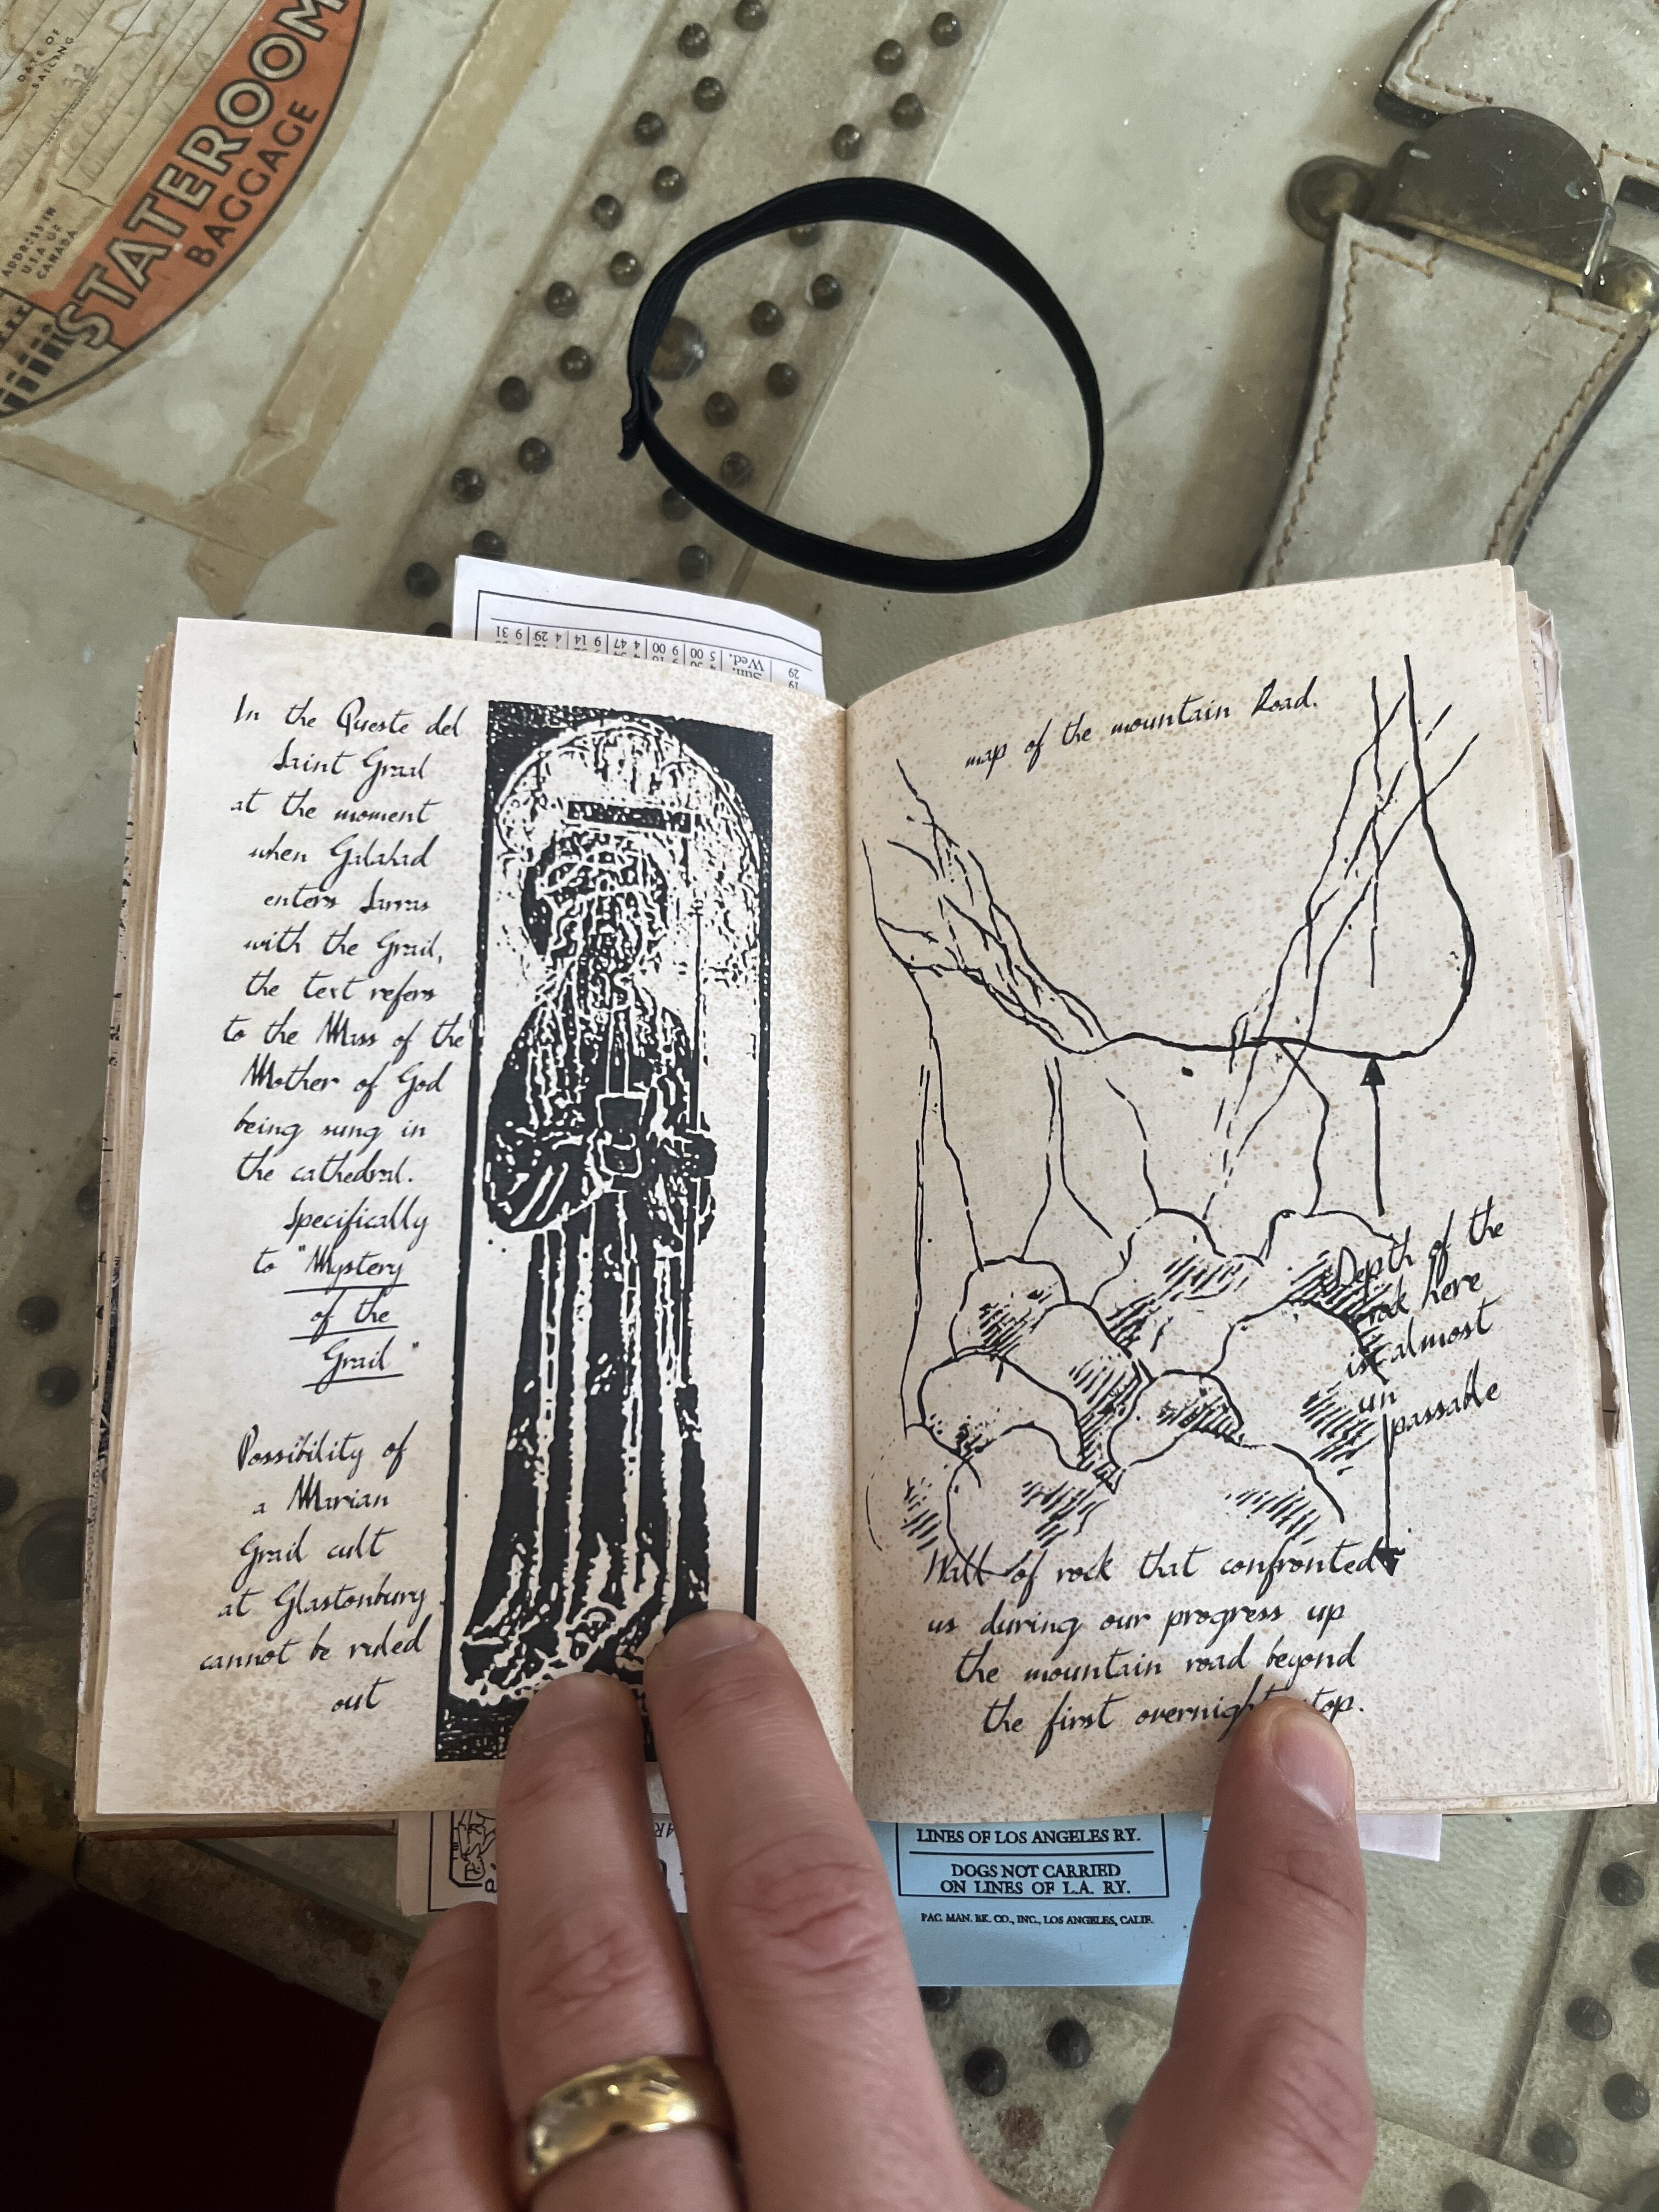 DATE OF
SAILING
32
ADDRESS IN
U.S.A. OR
CANADA
STATEROOM
BAGGAGE
29
Wed.
5 00
9 00
4 47
9 14
4 29
9 31
19
Sun.
In the Queste del
Saint Graal
at the moment
when Galahad
enters Sarras
with the Grail,
the text refers
to the Mass of the
Mother of God
being sung in
the cathedral.
Specifically
to "Mystery
of the
Grail"
Possibility of
a Marian
Grail cult
at Glastonbury
cannot be ruled
out
map of the mountain Road.
Depth of the
rock here
is almost
un
passable
Wall of rock that confronted
us during our progress up
the mountain road beyond
the first overnight stop.
LINES OF LOS ANGELES RY.
DOGS NOT CARRIED
ON LINES OF L.A. RY.
PAC. MAN. BK. CO., INC., LOS ANGELES, CALIF.